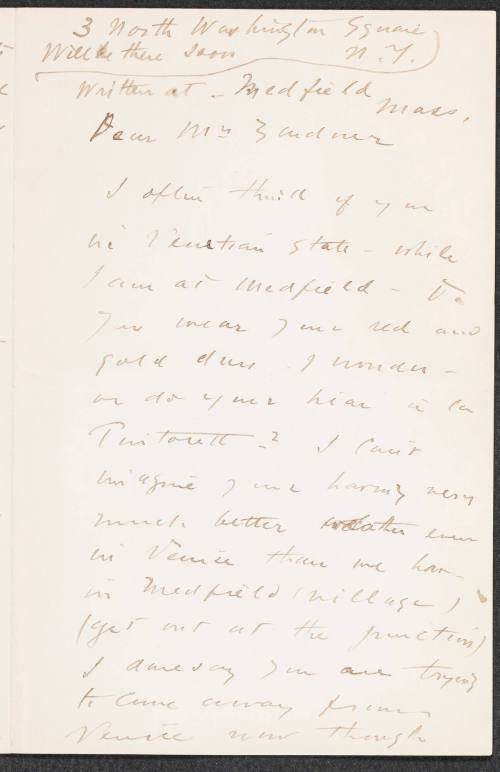 3 North Washington Square
Will be there soon N.Y.
Written at - Medfield
Mass,
Dear Mrs Gardner
I often think of you
in Venetian State - while
I am at Medfield - Do
you wear your red and
gold dress I wonder -
or do your hair à la
Tintorett -? I can't
imagine your having very
much better weather even
in Venice than we have
in Medfield (village)
(get out at the junction)
I daresay you are trying
to come away from
Venice now though